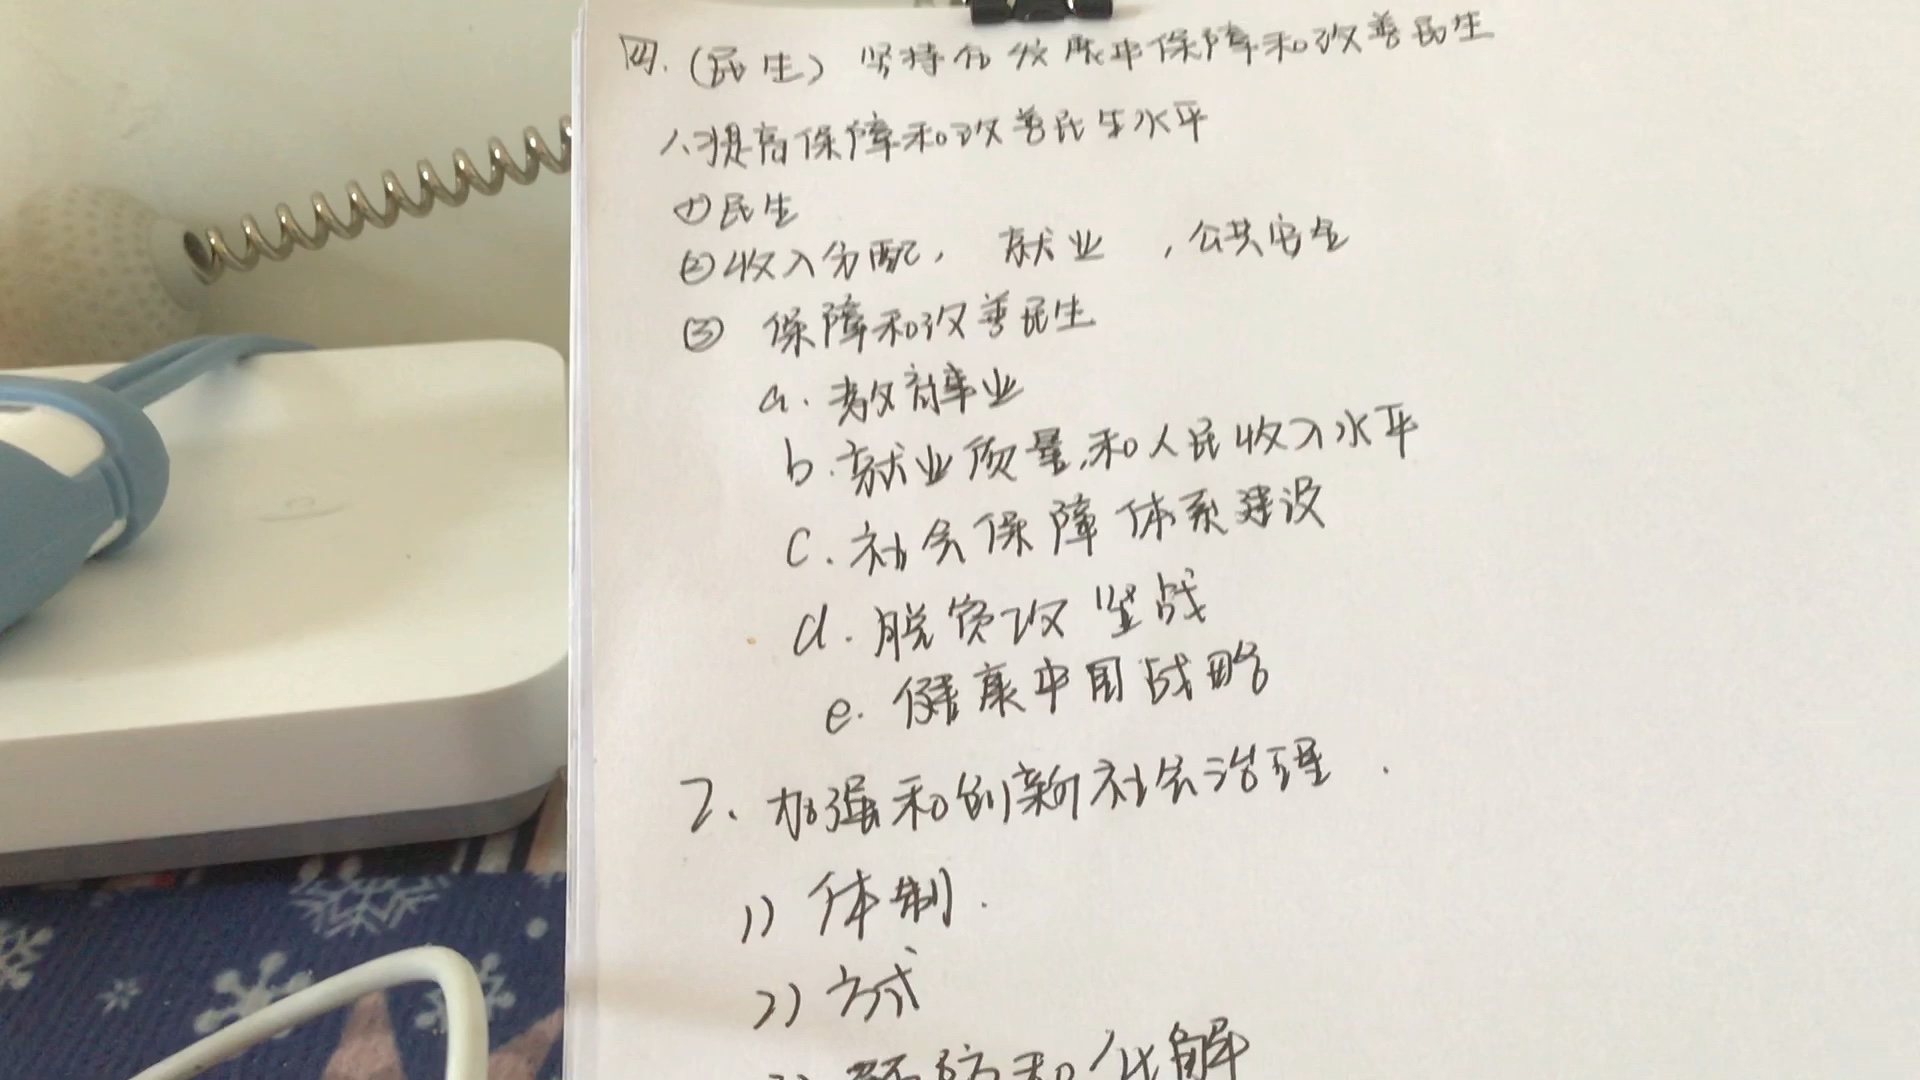 四.(民生) 坚持在发展中保障和改善民生
1、提高保障和改善民生水平
①民生
②收入分配, 就业 ,公共安全
③ 保障和改善民生
a. 教育事业
b.就业质量,和人民收入水平
c.社会保障体系建设
d.脱贫攻坚战
e.健康中国战略
2、加强和创新社会治理.
1)体制.
2)方式
3)预防和化解